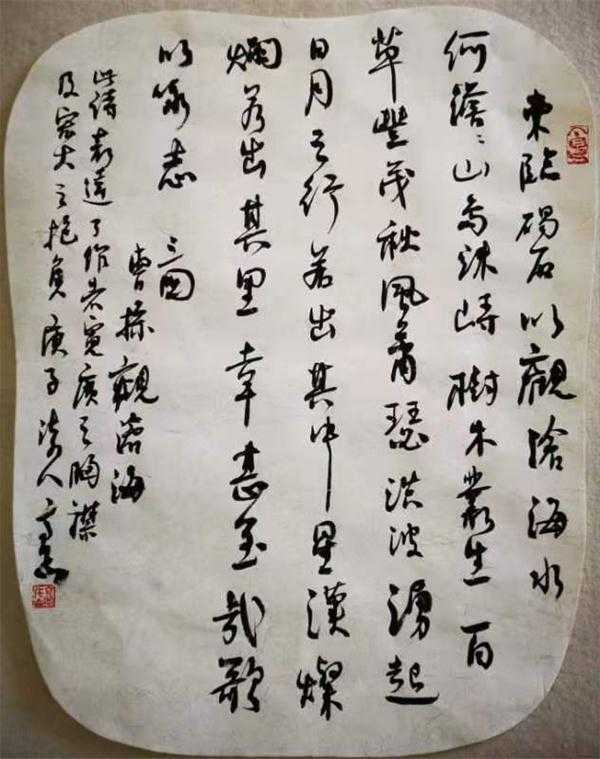 東臨碣石以觀滄海水
何澹〻山島竦峙樹木叢生百
草豐茂秋風蕭瑟洪波湧起
日月之行若出其中星漢燦
爛若出其里幸甚至哉歌
以詠志 三國
曹操觀滄海
此詩表達了作者寬廣之胸襟
及宏大之抱負庚子